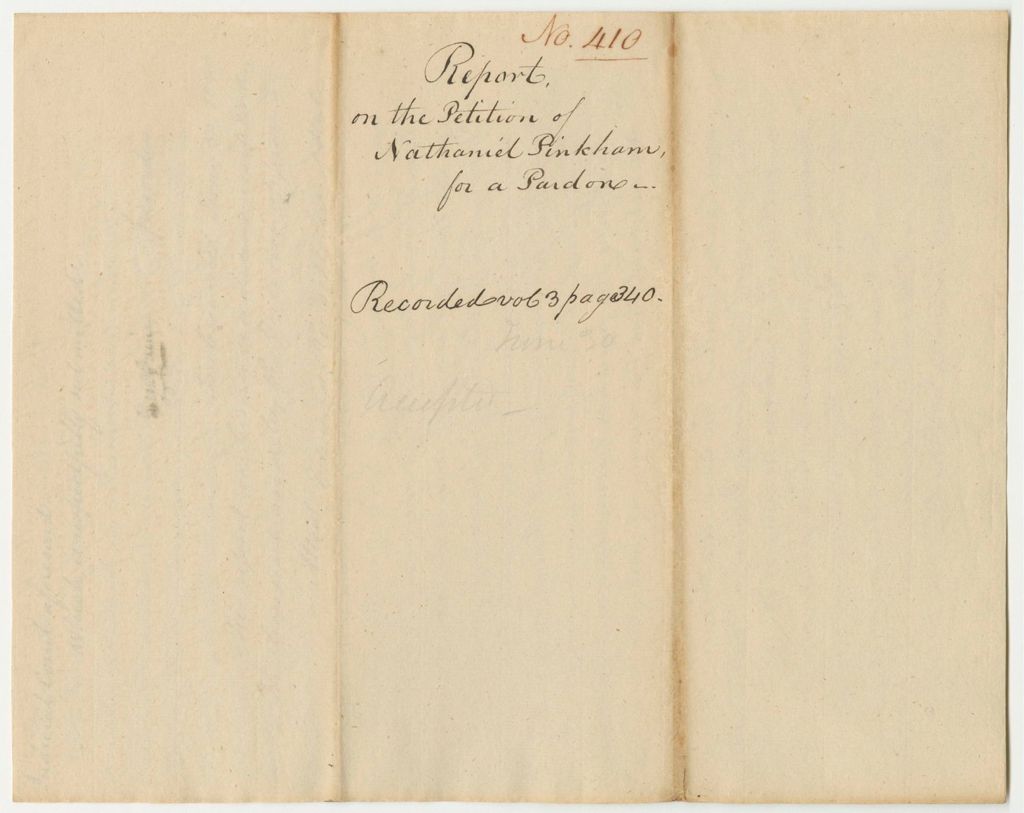 No. 410
Report,
on the Petition of
Nathaniel Pinkham,
for a Pardon—
Recorded vol 3 page 340.
June 30
Accepted—